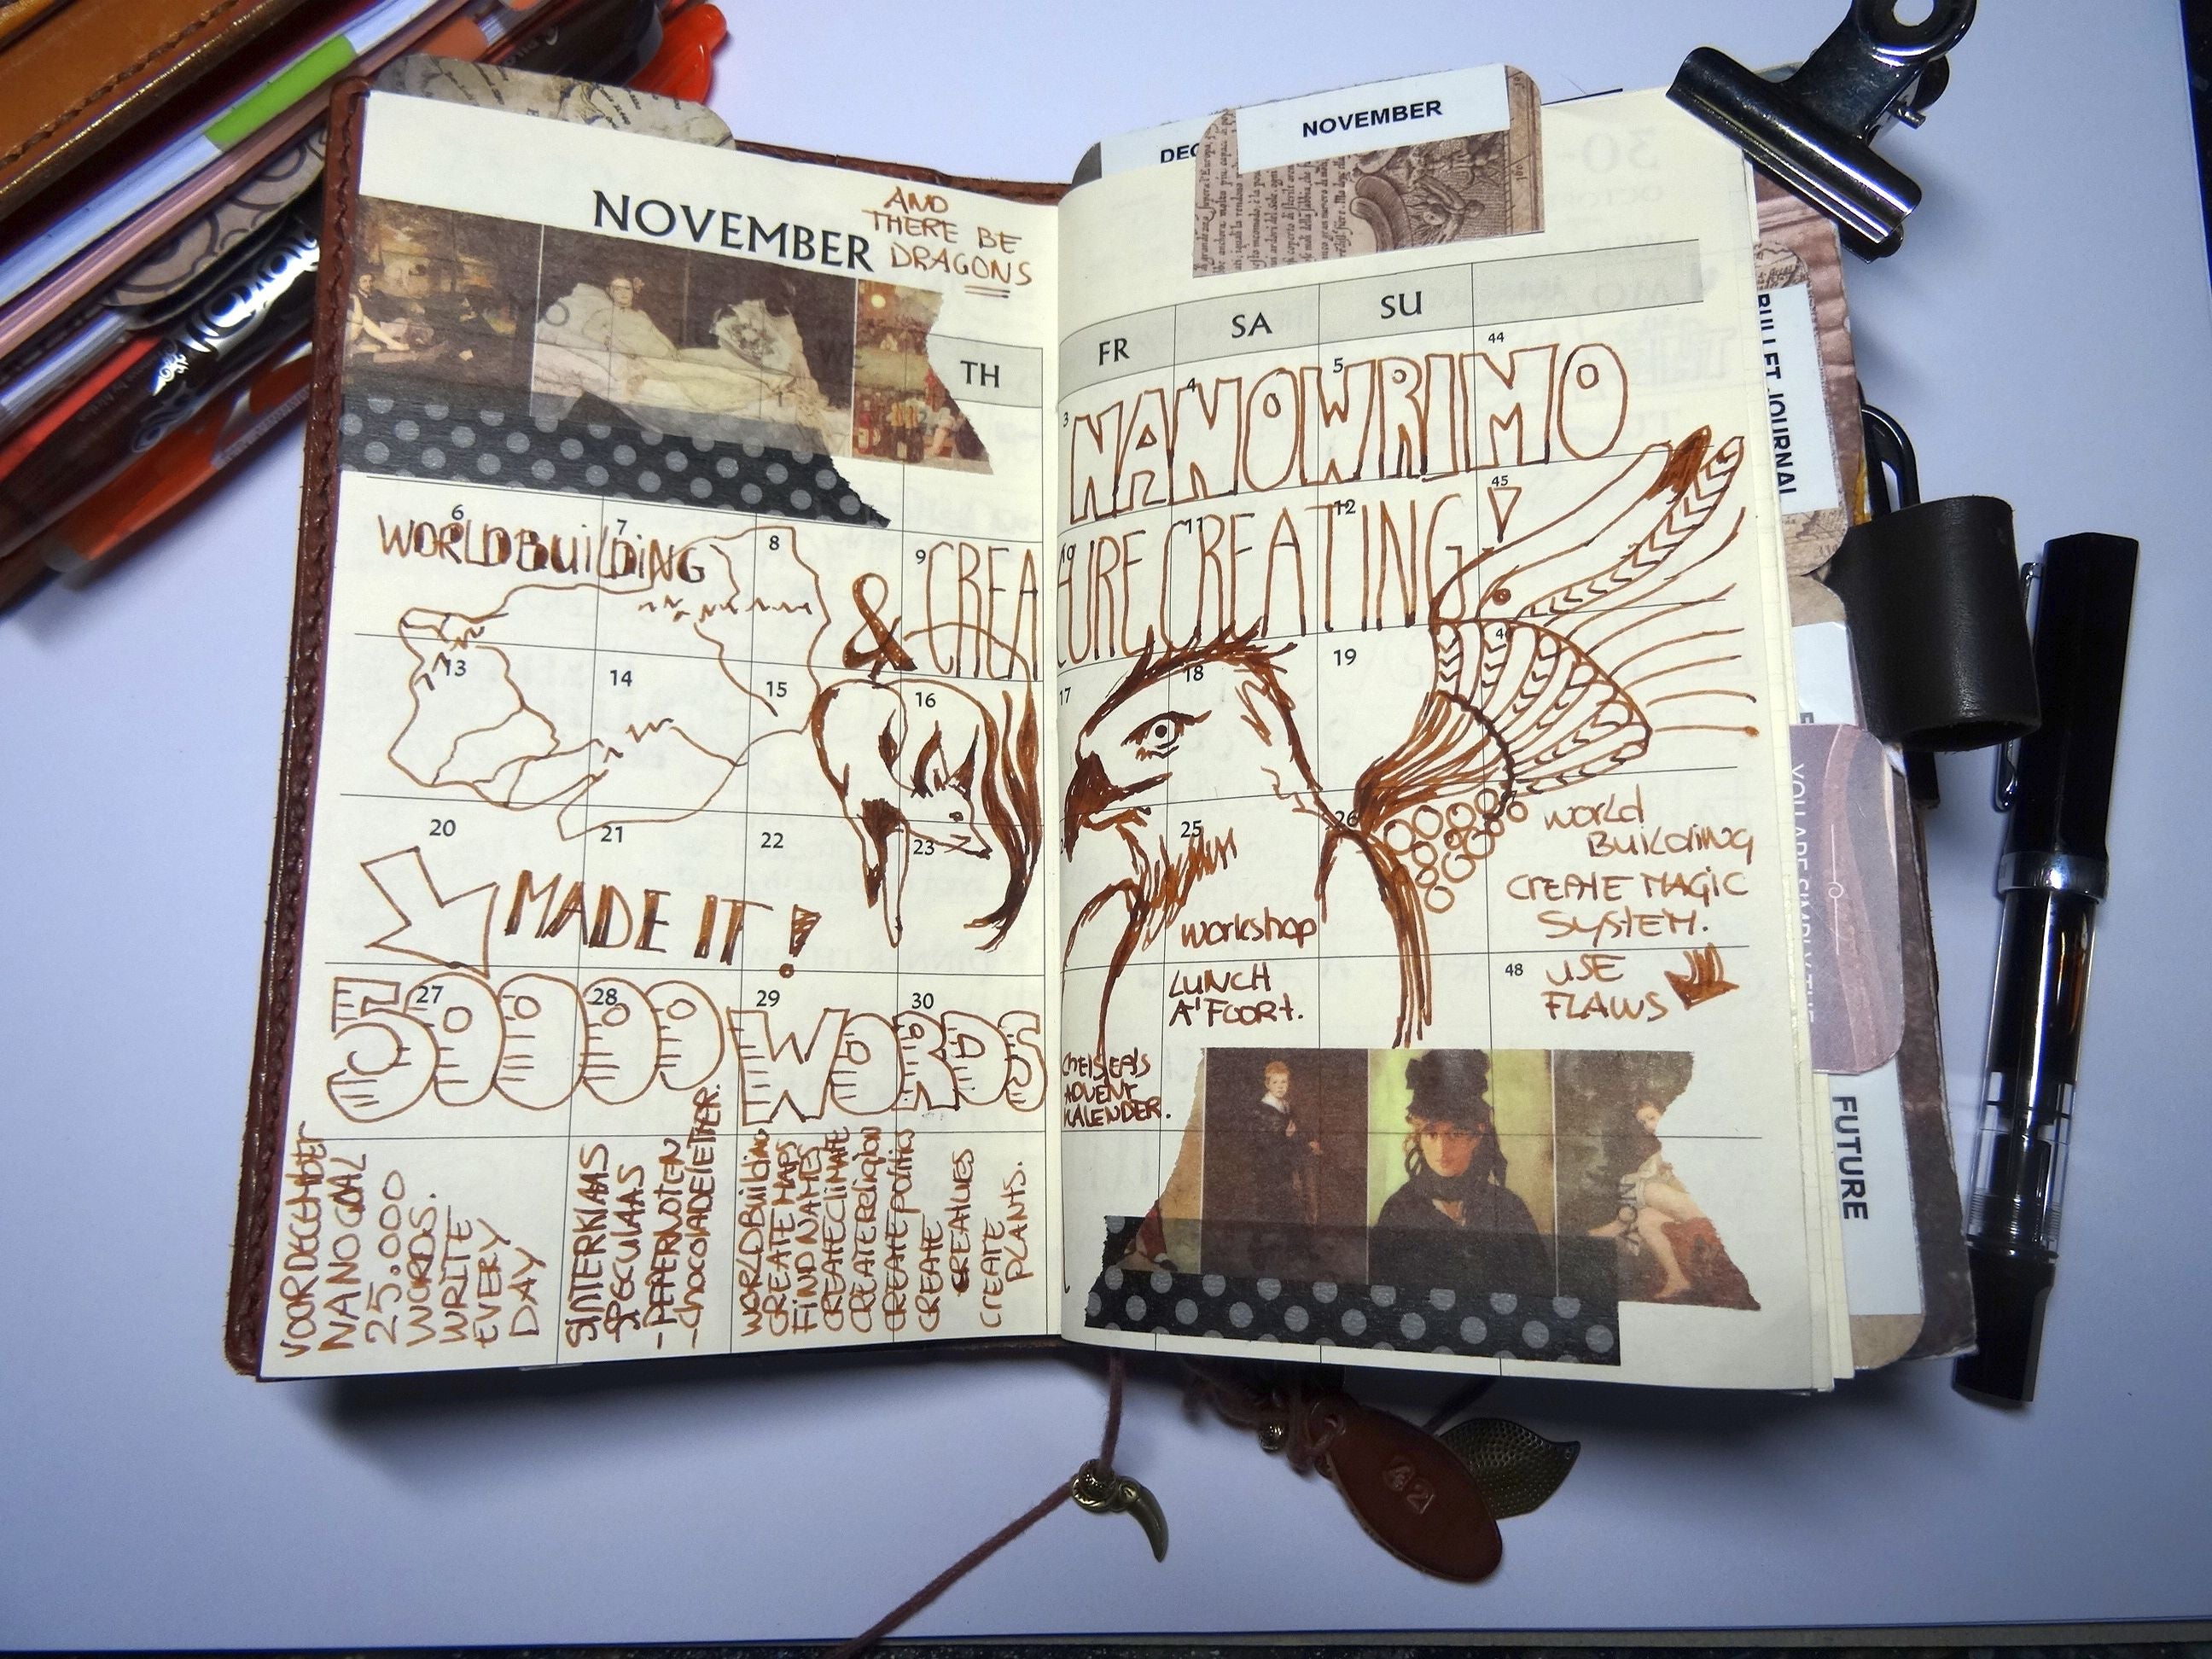 NOVEMBER
AND
THERE BE
DRAGONS
TH
6
7
8
9
WORLDBUILDING
& CREA
13
14
15
16
20
21
22
23
MADE IT!
27
28
29
30
50000 WORDS
NANO GOAL
25.000
WORDS.
WRITE
EVERY
DAY
SINTERKLAAS
SPECULAAS
-PEPERNOTEN
-CHOCOLADELETTER.
WORLDBUILDING
CREATE MAPS
FIND NAMES
CREATE CLIMATE
CREATE RELIGION
CREATE POLITICS
CREATE
CREATE
PLANTS.
DEC
NOVEMBER
FR
SA
SU
44
3
4
5
NANOWRIMO
45
10
11
12
TURE CREATING!
17
18
19
46
25
26
WORLD
BUILDING
CREATE MAGIC
SYSTEM.
WORKSHOP
LUNCH
A'FOORT.
48
USE
FLAWS
CHELSEA'S
ADVENT
KALENDER.
BULLET JOURNAL
YOU ARE SIMPLY THE
FUTURE
42